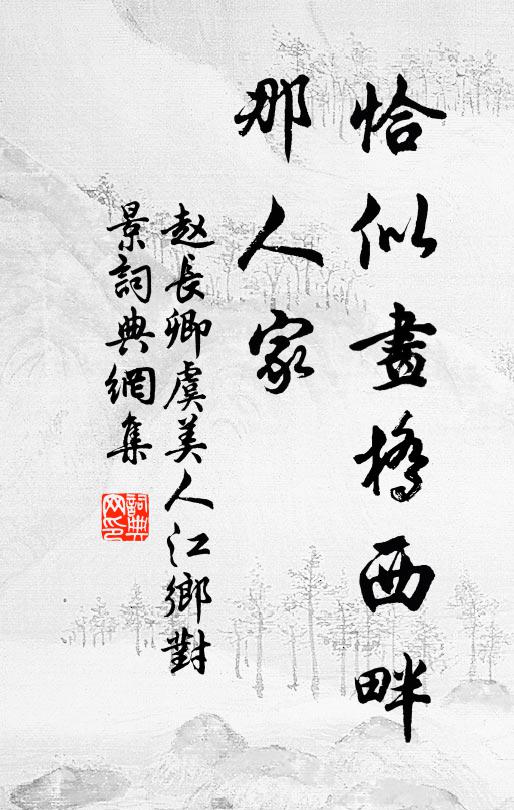 恰似畫橋西畔
那人家
赵長卿虞美人江鄉對
景詞典網集
詞典
网印